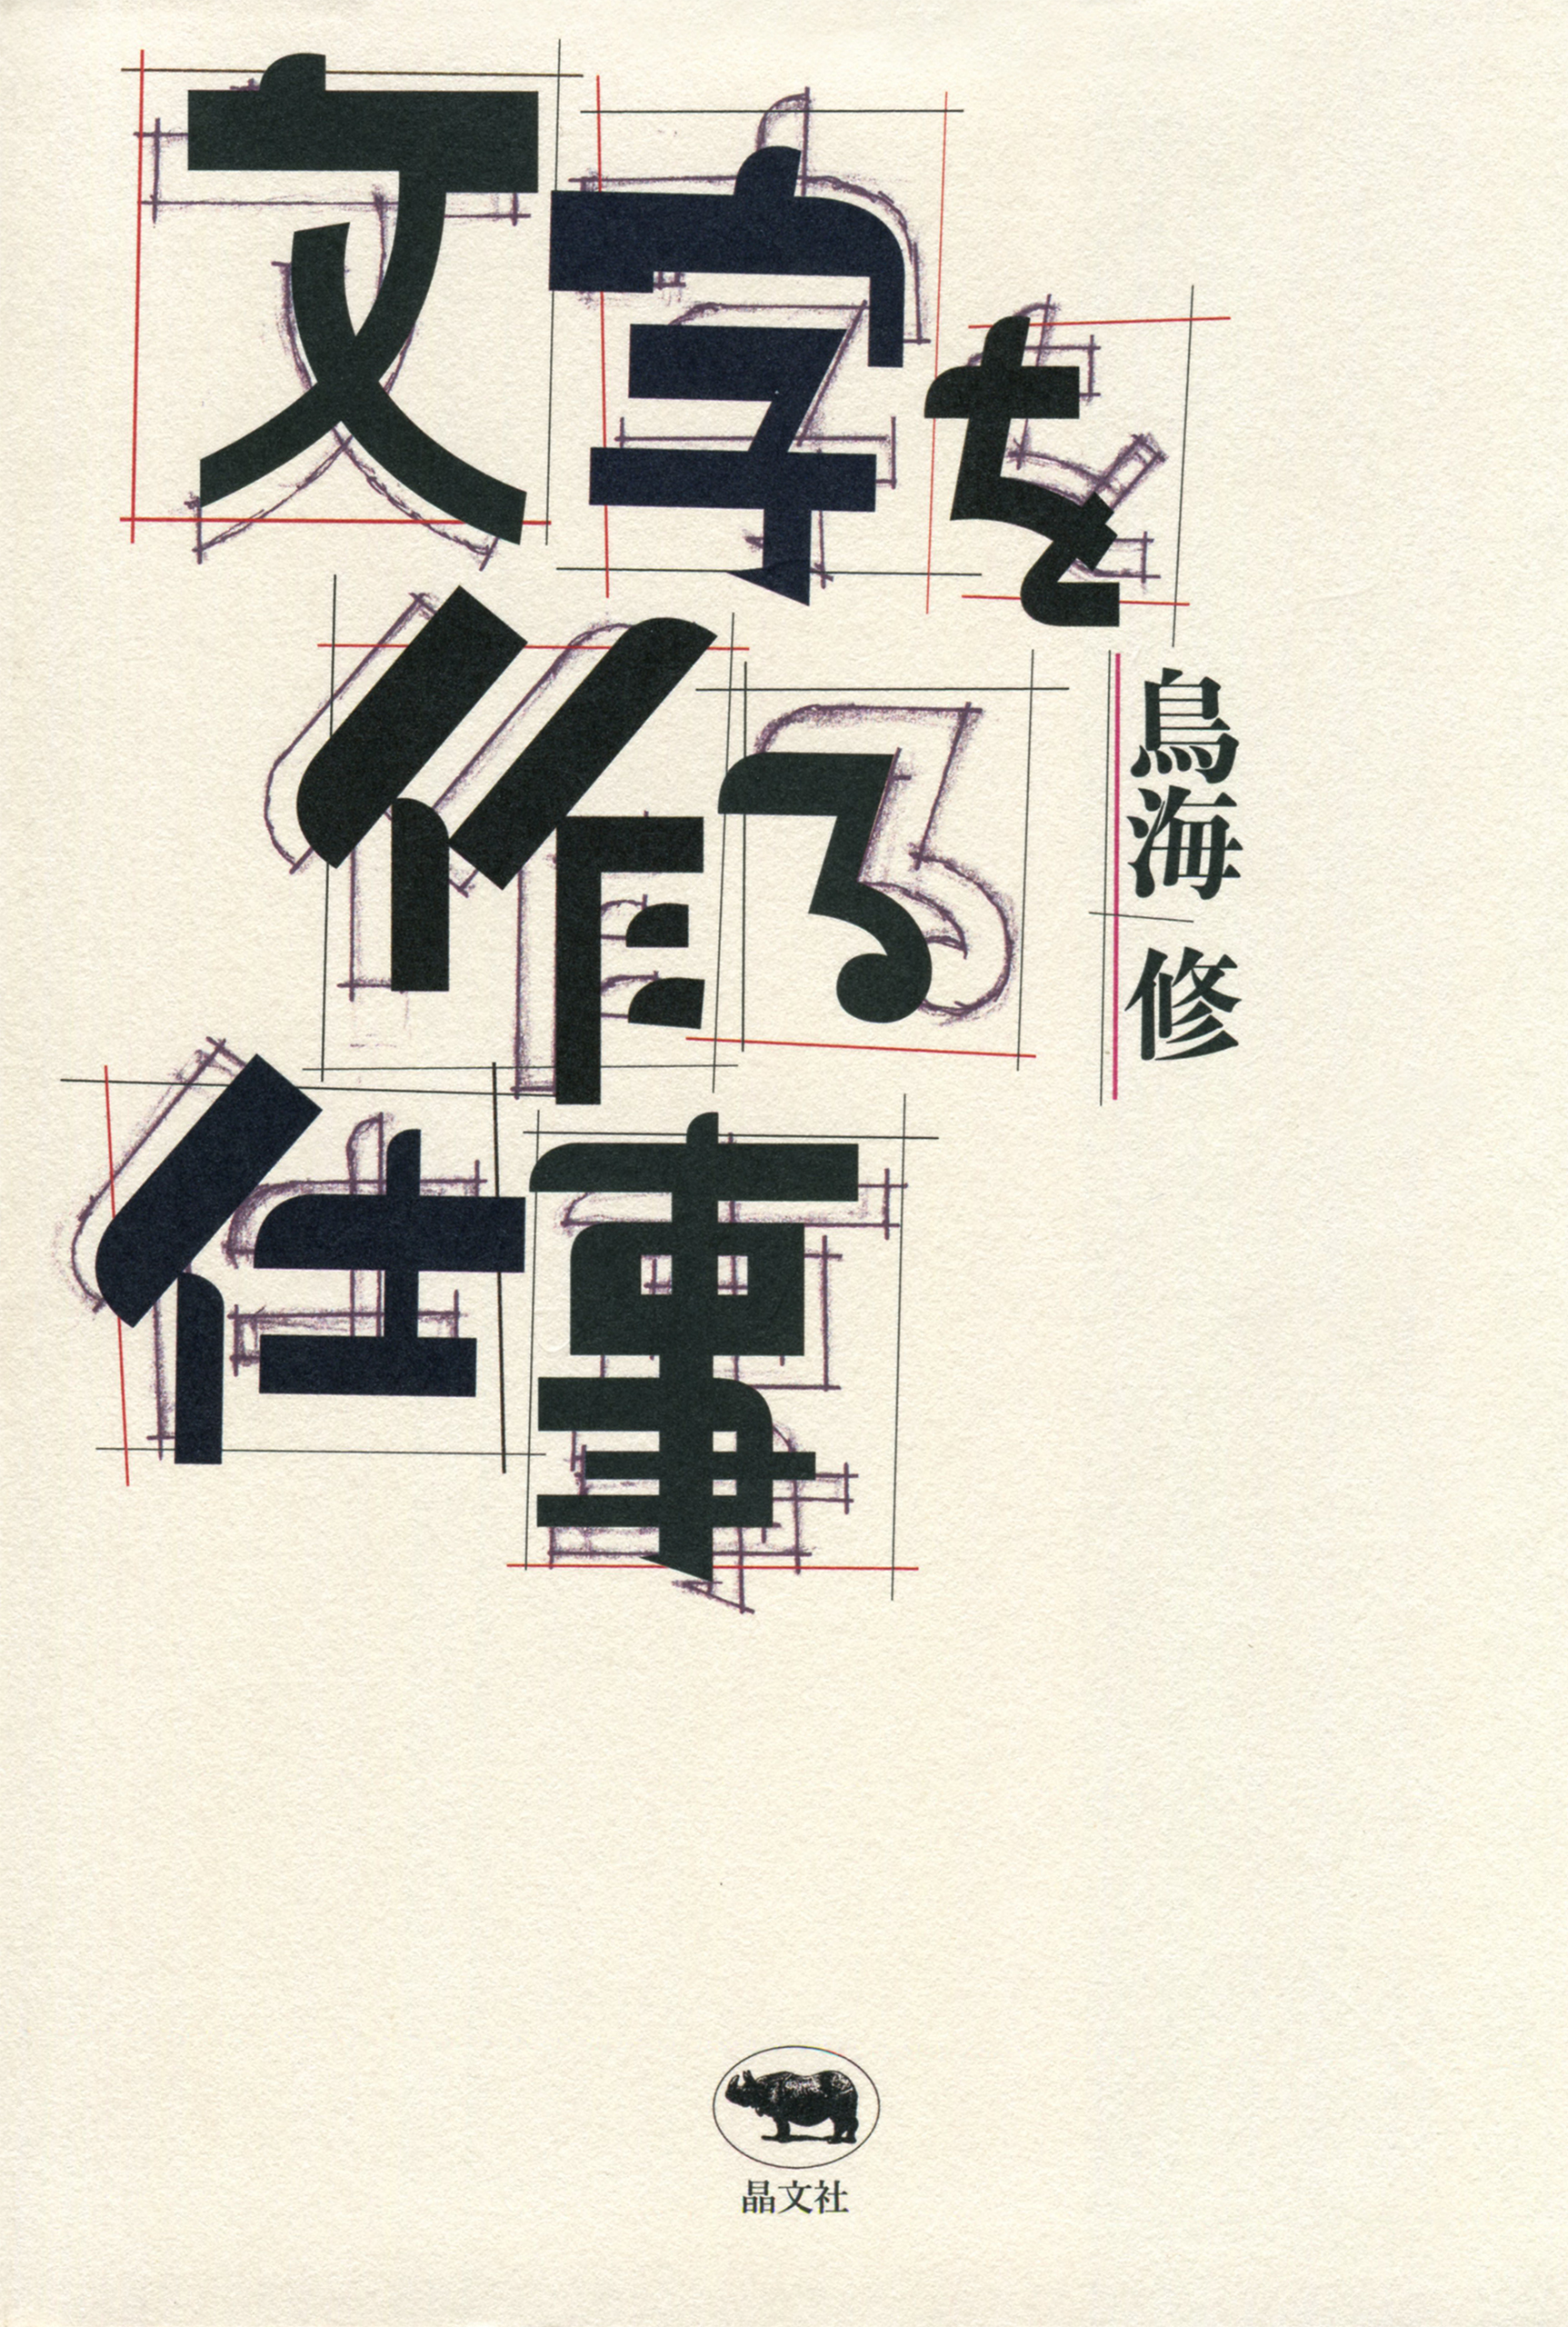 文字を
作る
仕事
鳥海 修
晶文社